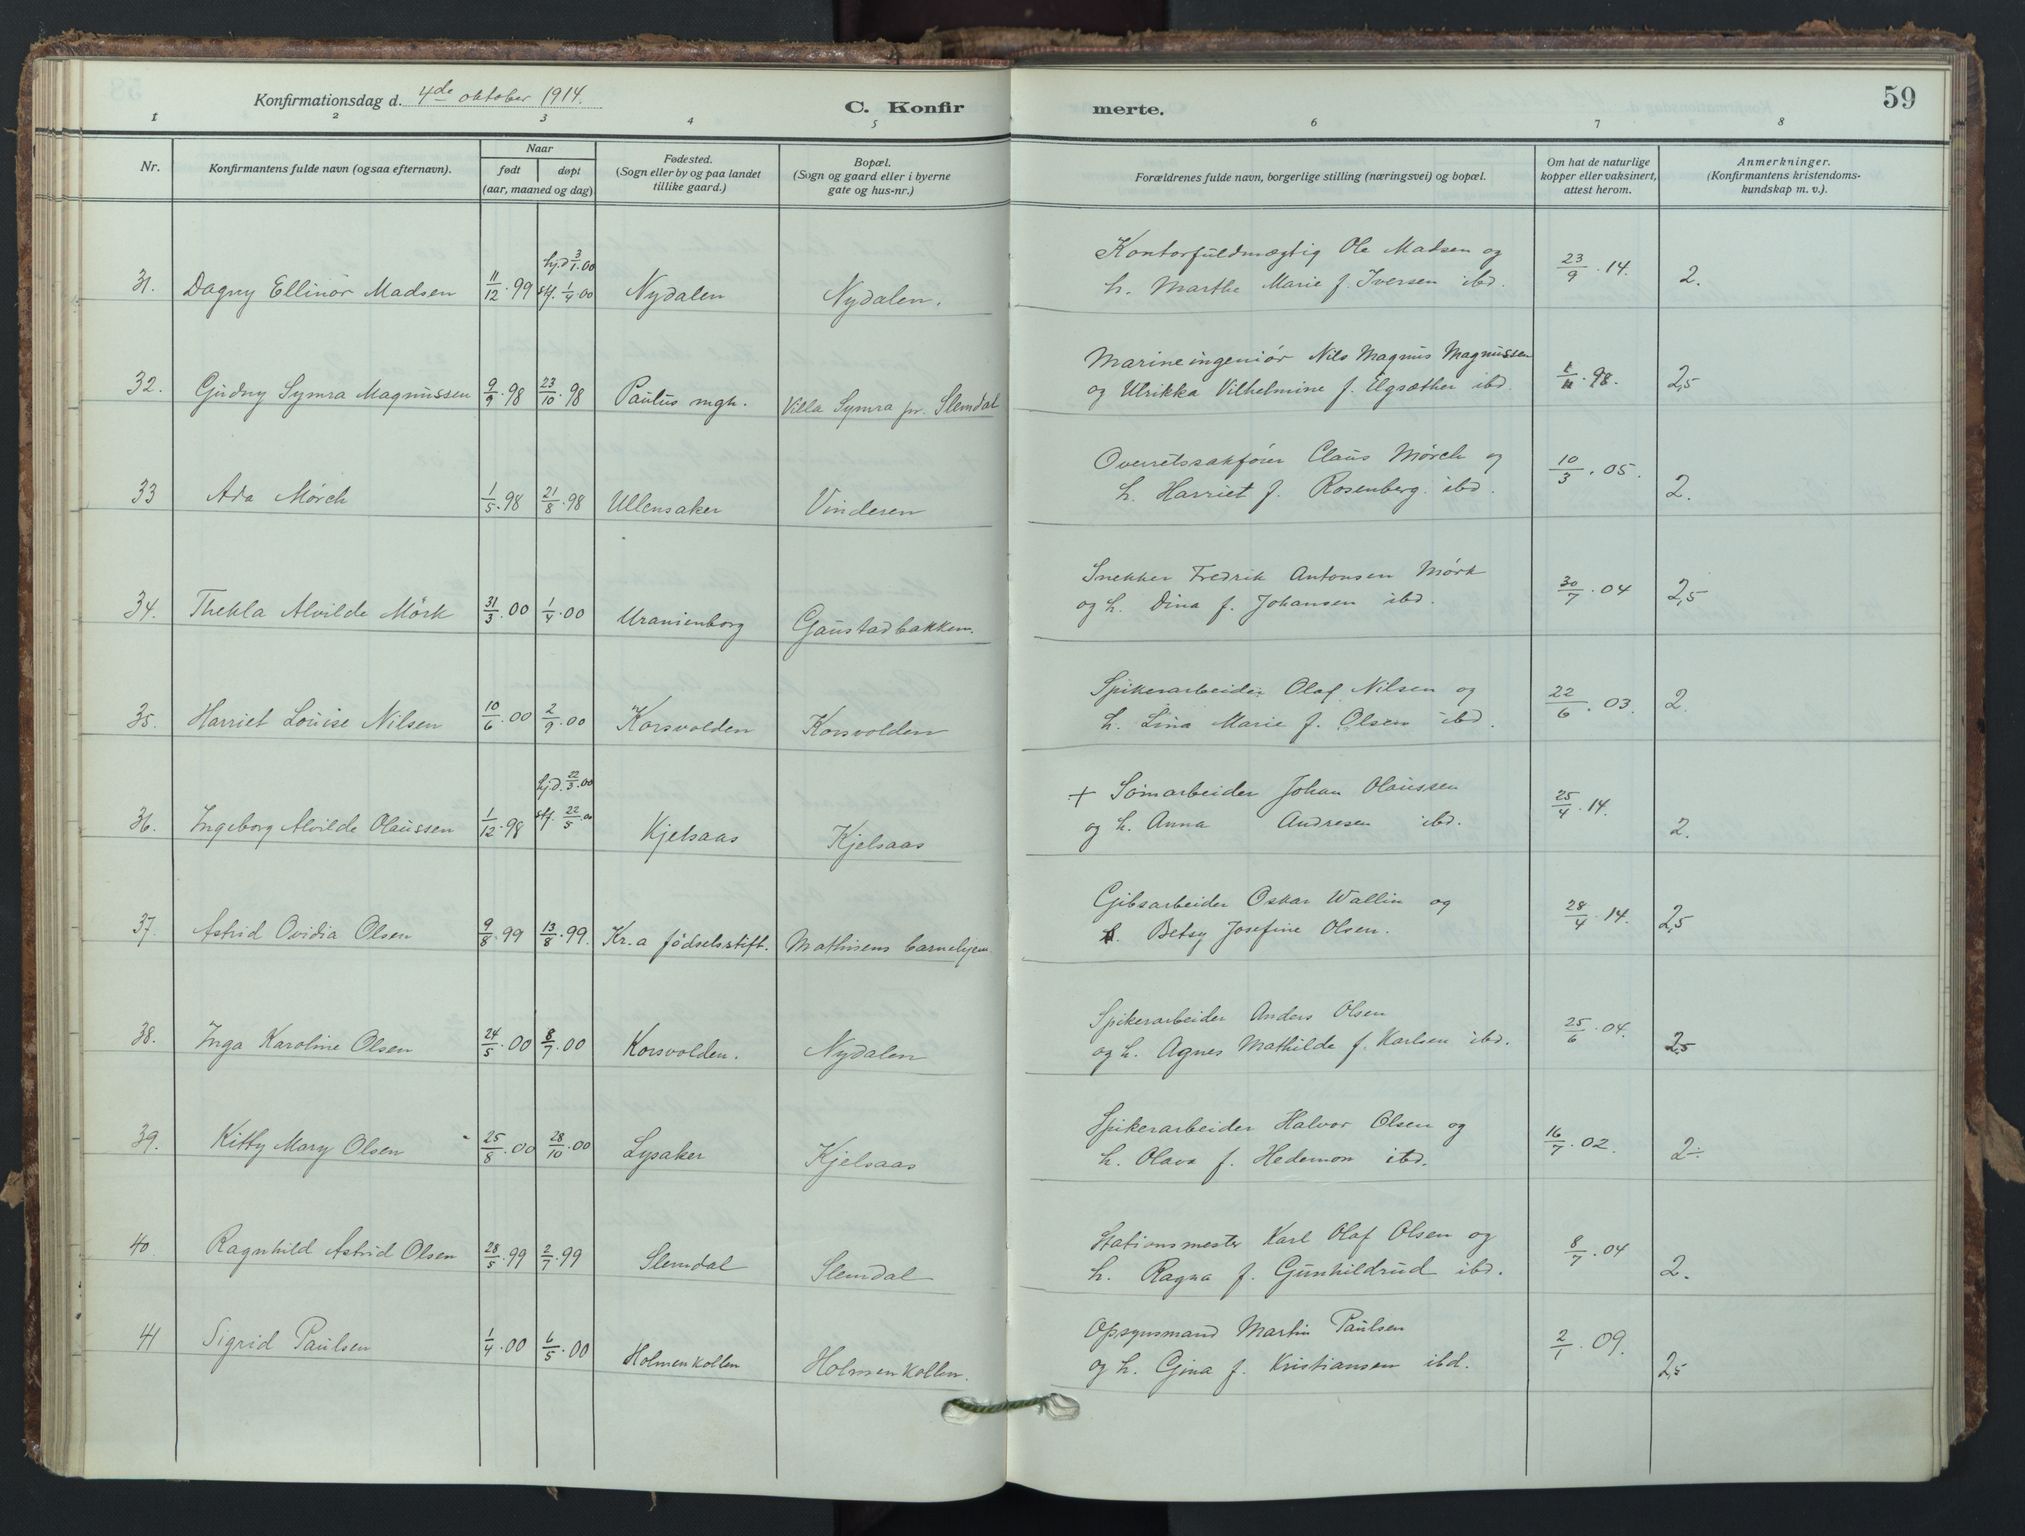 Konfirmationsdag d. 4de oktober 1914.
C. Konfirmerte.
59
1 2 3 4 5 6 7 8
Nr.
Konfirmantens fulde navn (ogsaa efternavn).
Naar
født døpt
(aar, maaned og dag)
Fødested.
(Sogn eller by og paa landet
tillike gaard.)
Bopæl.
(Sogn og gaard eller i byerne
gate og hus-nr.)
Forældrenes fulde navn, borgerlige stilling (næringsvei) og bopæl.
Om hat de naturlige
kopper eller vaksinert,
attest herom.
Anmerkninger.
(Konfirmantens kristendoms-
kundskap m. v.).
31. Dagny Ellinor Madsen 11/12.99 hj.d 3/1.00 stf. 1/4.00 Nydalen Nydalen.
Kontorfuldmægtig Ole Madsen og
h. Marthe Marie f. Iversen ibd. 23/9.14. 2.
32. Gudny Symra Magnussen 9/9.98 23/10.98 Paulus mgh. Villa Symra pr. Slemdal
Marineingeniør Nils Magnus Magnussen
og Ulrikka Vilhelmine f. Elgsæther ibd. 1/11.98. 2,5
33 Ada Mørch 1/5.98 21/8.98 Ullensaker Vinderen
Overretssakfører Claus Mørch og
h. Harriet f. Rosenberg. ibd. 10/3.05. 2.
34. Thekla Alvilde Mörk 31/3.00 1/4.00 Uranienborg Gaustadbakken.
Snekker Fredrik Antonsen Mörk
og h. Dina f. Johansen ibd. 30/7.04 2,5
35. Harriet Louise Nilsen 10/6.00 2/9.00 Korsvolden Korsvolden
Spikerarbeider Olaf Nilsen og
h. Lina Marie f. Olsen ibd. 22/6.03. 2.
36. Ingeborg Alvilde Olaussen 1/12.98 hj.d. 22/3.00 stf. 22/5.00 Kjelsaas Kjelsaas
+ Sömarbeider Johan Olaussen
og h. Anna Andresen ibd. 25/4.14. 2.
37. Astrid Ovidia Olsen 9/8.99 13/8.99. Kr.a födselsstift. Mathisens barnehjem
Gibsarbeider Oskar Wallin og
Betsy Josefine Olsen. 28/4.14. 2,5
38. Inga Karoline Olsen 24/5.00 8/7.00 Korsvolden. Nydalen
Spikerarbeider Anders Olsen
og h. Agnes Mathilde f. Karlsen ibd. 25/6.04. 2,5
39. Kitty Mary Olsen 25/8.00 28/10.00 Lysaker Kjelsaas
Spikerarbeider Halvor Olsen og
h. Olava f. Hedemon ibd. 16/7.02. 2÷
40. Ragnhild Astrid Olsen 28/5.99 2/7.99 Slemdal Slemdal
Stationsmester Karl Olaf Olsen og
h. Ragna f. Gunhildrud ibd. 8/7.04 2.
41 Sigrid Paulsen 1/4.00 6/5.00 Holmenkollen Holmenkollen.
Opsynsmand Martin Paulsen
og h. Gina f. Kristiansen ibd. 2/1.09. 2,5